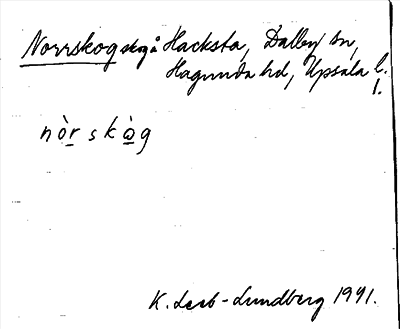 Norrskog skog å Hacksta, Dalby sn,
Hagunda hd, Upsala l.
1.
nò̱r skò̱g
K. Leeb-Lundberg 1941.